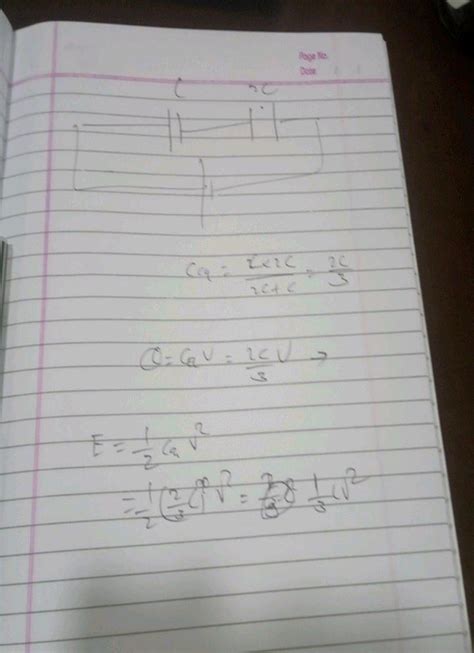 Page No.
Date
C 2C
Ceq = C×2C / 2C+C = 2C / 3
Q = CeqV = 2C/3 V →
E = 1/2 Ceq V²
= 1/2 (2/3 C) V² = 1/3 CV²